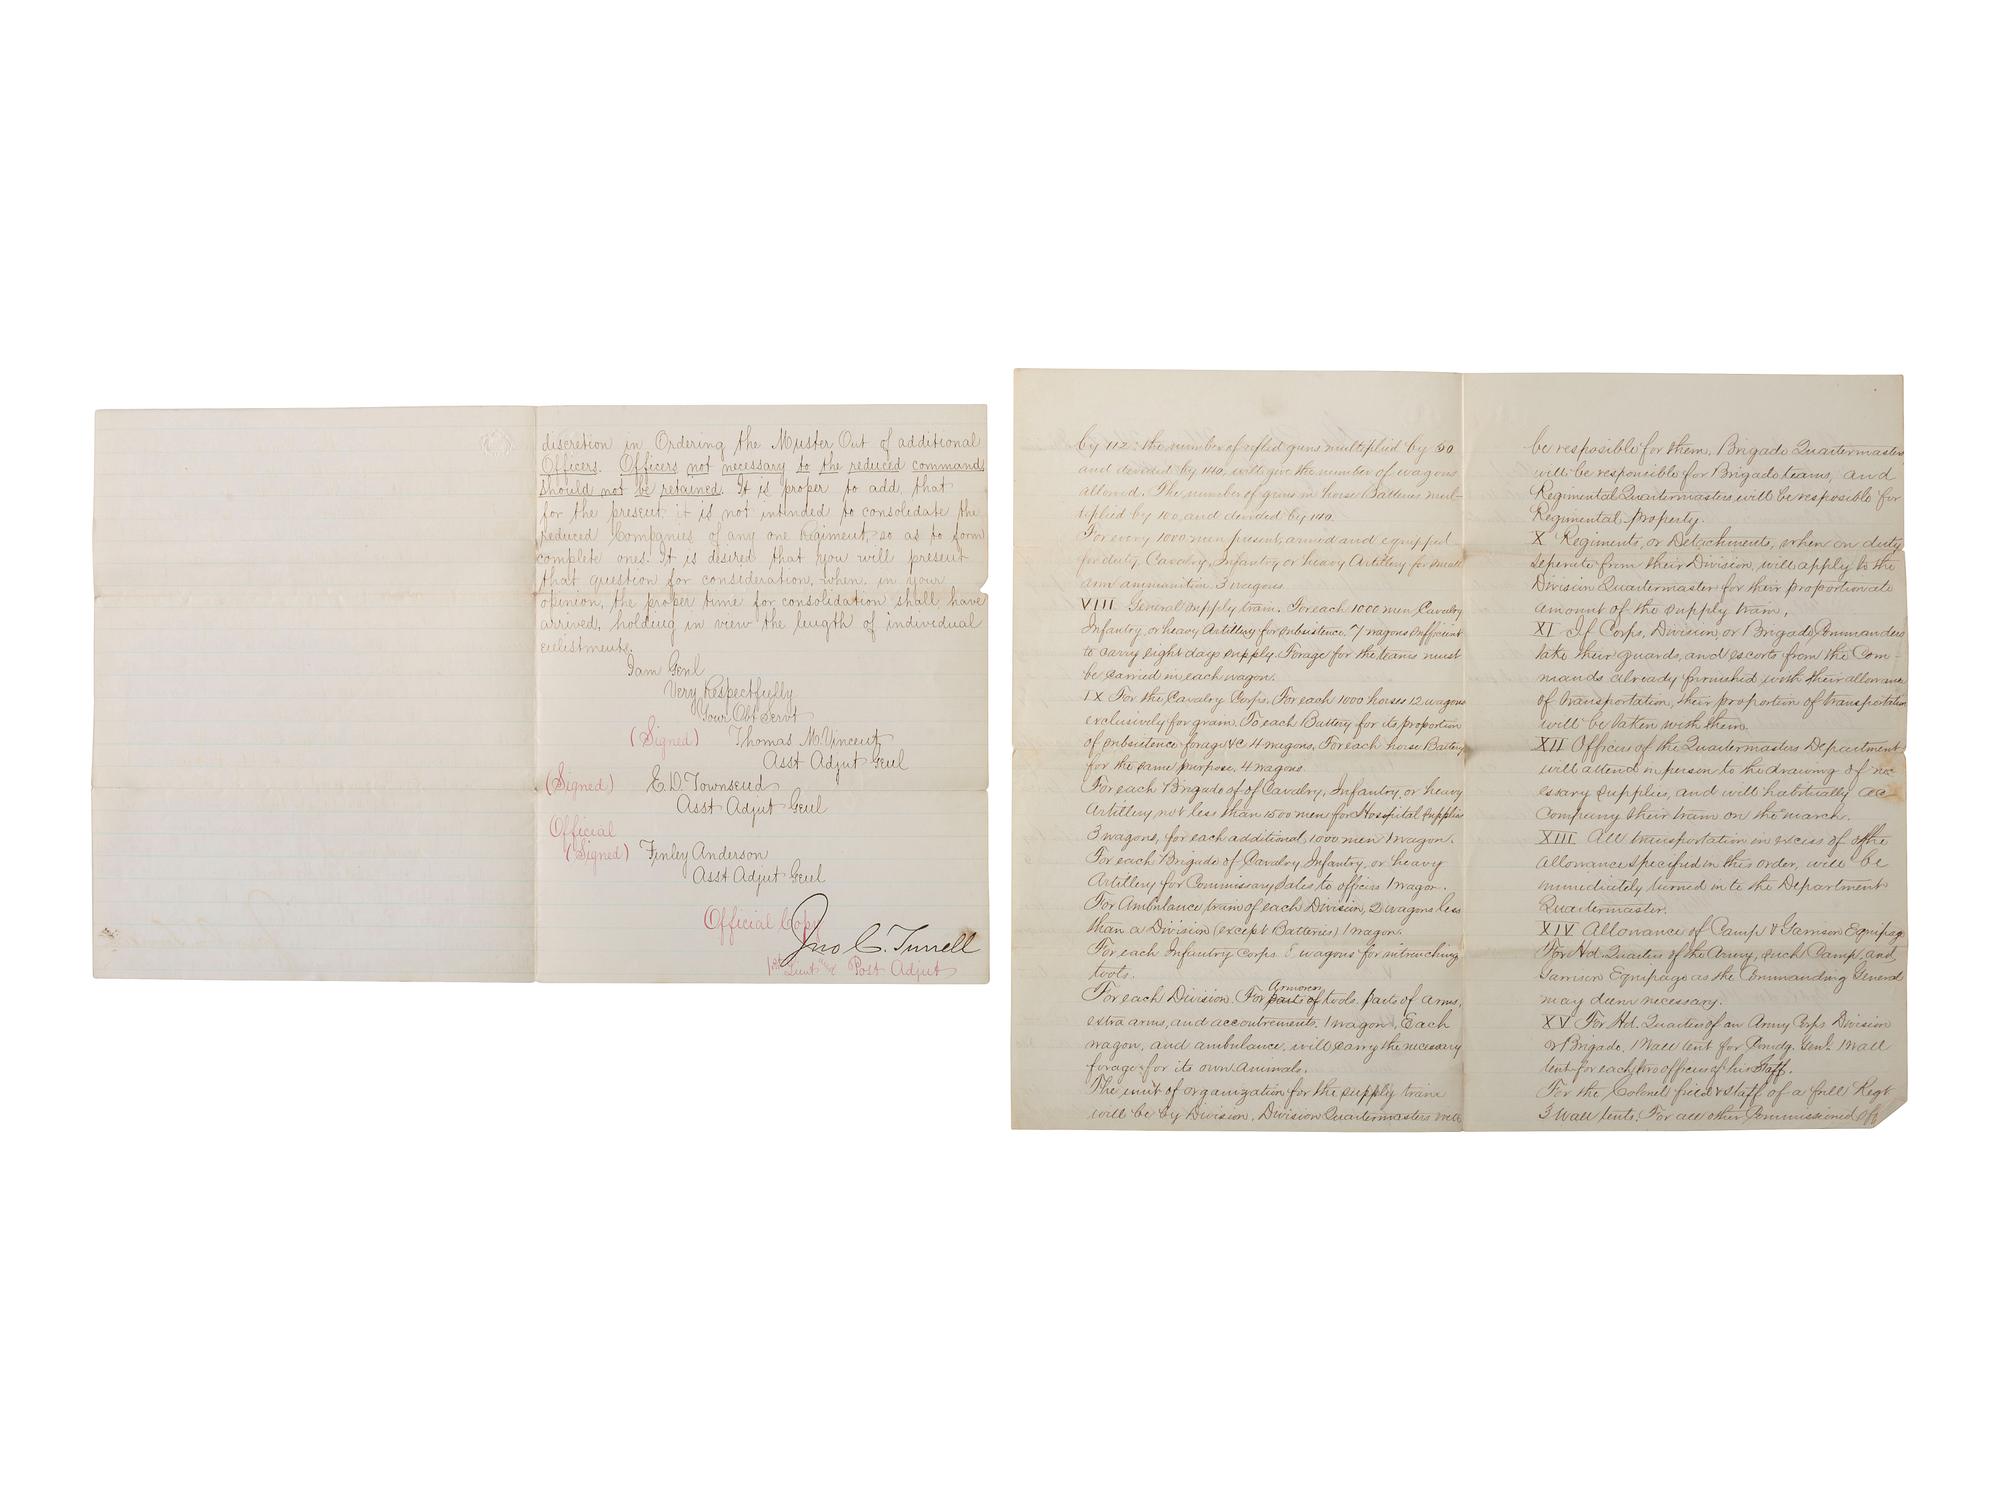 discretion in Ordering the Muster Out of additional
Officers. Officers not necessary to the reduced commands
should not be retained. It is proper to add, that
for the present it is not intended to consolidate the
reduced Companies of any one Regiment, so as to form
complete ones. It is desired that you will present
that question for consideration, when, in your
opinion, the proper time for consolidation shall have
arrived, holding in view the length of individual
enlistments.
I am Genl
Very Respectfully
Your Obt Servt
(Signed) Thomas M. Vincent
Asst Adjut Genl
(Signed) E. D. Townsend
Asst Adjut Genl
Official
(Signed) Finley Anderson
Asst Adjut Genl
Official Copy
Jno C. Turrell
1st Lieut & Post Adjut
by 112: the number of rifled guns multiplied by 50
and devided by 140, will give the number of wagons
allowed. The number of guns in horse Batteries mul-
tiplied by 100, and divided by 140.
For every 1000 men present, armed and equipped
for duty, Cavalry, Infantry, or heavy Artillery for small
arm ammunition 3 wagons
VIII General supply train. For each 1000 men, Cavalry
Infantry, or heavy Artillery for subsistence 7 wagons sufficient
to carry eight days supply. Forage for the teams must
be carried in each wagon.
IX For the Cavalry Corps. For each 1000 horses 12 wagons
exclusively for grain. To each Battery for its proportion
of subsistence forage &c 4 wagons, For each horse Battery
for the same purpose, 4 wagons.
For each Brigade of of Cavalry, Infantry, or heavy
Artillery, not less than 1500 men for Hospital supplies
3 wagons, for each additional 1000 men 1 wagon.
For each Brigade of Cavalry Infantry, or heavy
Artillery for Commissary Sales to officers 1 wagon.
For Ambulance, train of each Division, 2 wagons less
than a Division (except Batteries) 1 wagon.
For each Infantry Corps 8 wagons for intrenching
tools.
Armorers
For each Division. For parts of tools. parts of arms,
extra arms, and accoutrements. 1 wagon, Each
wagon, and ambulance, will carry the necessary
forage for its own animals.
The unit of organization for the supply train
will be by Division. Division Quartermasters will
be resposible for them, Brigade Quartermasters
will be responsible for Brigade teams, and
Regimental Quartermasters, will be resposible for
Regimental property.
X Regiments, or Detachments, when on duty
seperate from their Division, will apply to the
Division Quartermaster for their proportionate
amount of the supply train,
XI If Corps, Division, or Brigade Commanders
take their guards, and escorts from the Com-
mands already furnished with their allowance
of transportation, their proportion of transportation
will be taken with them.
XII Officers of the Quartermasters Department
will attend in person to the drawing of nec
essary supplies, and will habitually ac
company their train on the march.
XIII All transportation in excess of the
allowance specified in this order, will be
immediately turned in to the Department
Quartermaster.
XIV Allowance of Camp & Garrison Equipage
For Hd. Quarters of the Army, such Camp, and
Garrison Equipage as the Commanding General
may deem necessary.
XV For Hd. Quarters of an Army Corps Division
or Brigade, 1 Wall tent for Comdg. Genl. 1 Wall
tent for each two officers of his Staff.
For the Colonel field & staff of a full Regt
3 Wall tents. For all other Commissioned off